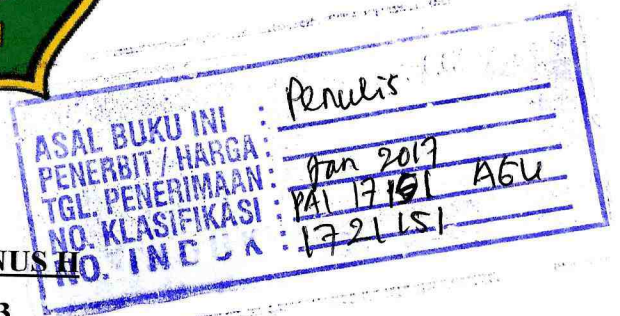 ASAL BUKU INI : Penulis
PENERBIT / HARGA :
TGL. PENERIMAAN : Jan 2017
NO. KLASIFIKASI : PAI 17151 AGU
NO. INDUK : 1721151
NUS H
3